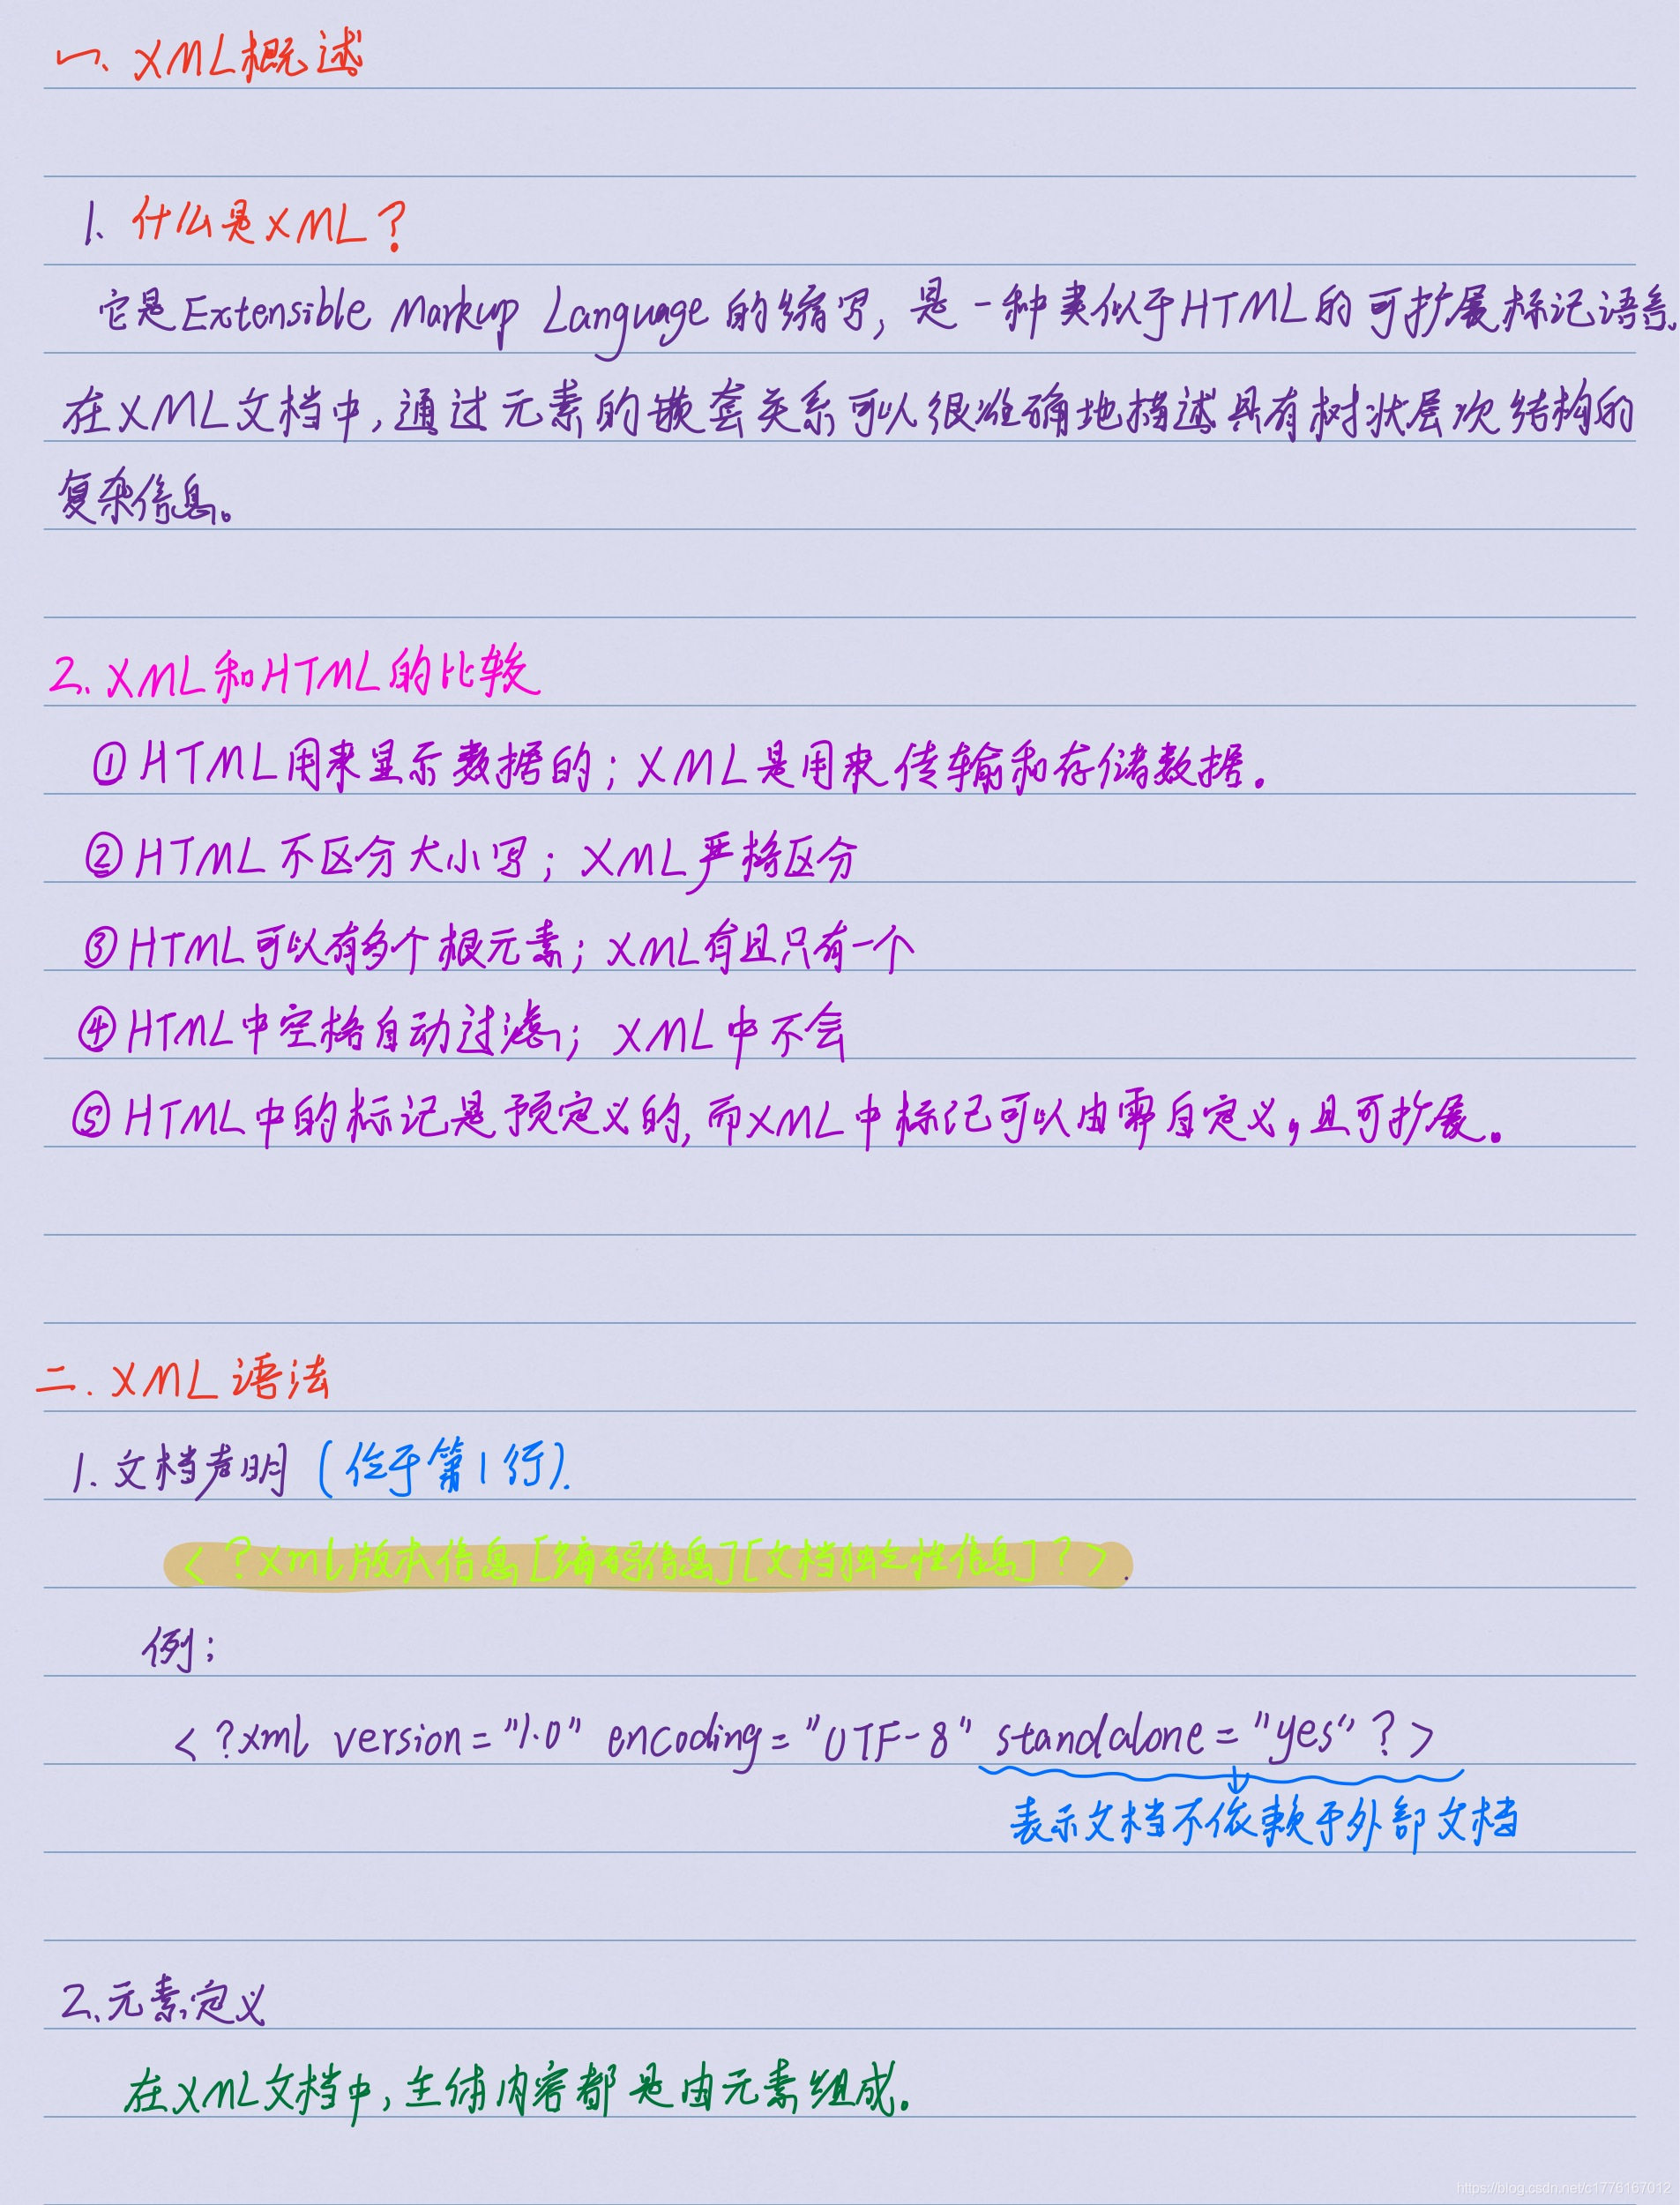 一、XML概述
1、什么是XML?
它是Extensible Markup Language的缩写,是一种类似于HTML的可扩展标记语言。
在XML文档中,通过元素的嵌套关系可以很准确地描述具有树状层次结构的
复杂信息。
2、XML和HTML的比较
①HTML用来显示数据的;XML是用来传输和存储数据.
②HTML不区分大小写;XML严格区分
③HTML可以有多个根元素;XML有且只有一个
④HTML中空格自动过滤;XML中不会
⑤HTML中的标记是预定义的,而XML中标记可以由需自定义,且可扩展。
二.XML语法
1.文档声明(位于第1行).
<?xml版本信息[编码信息][文档独立性信息]?>.
例:
<?xml version="1.0" encoding="UTF-8" standalone="yes"?>
表示文档不依赖于外部文档
2、元素定义
在XML文档中,主体内容都是由元素组成.
https://blog.csdn.net/c1776167012